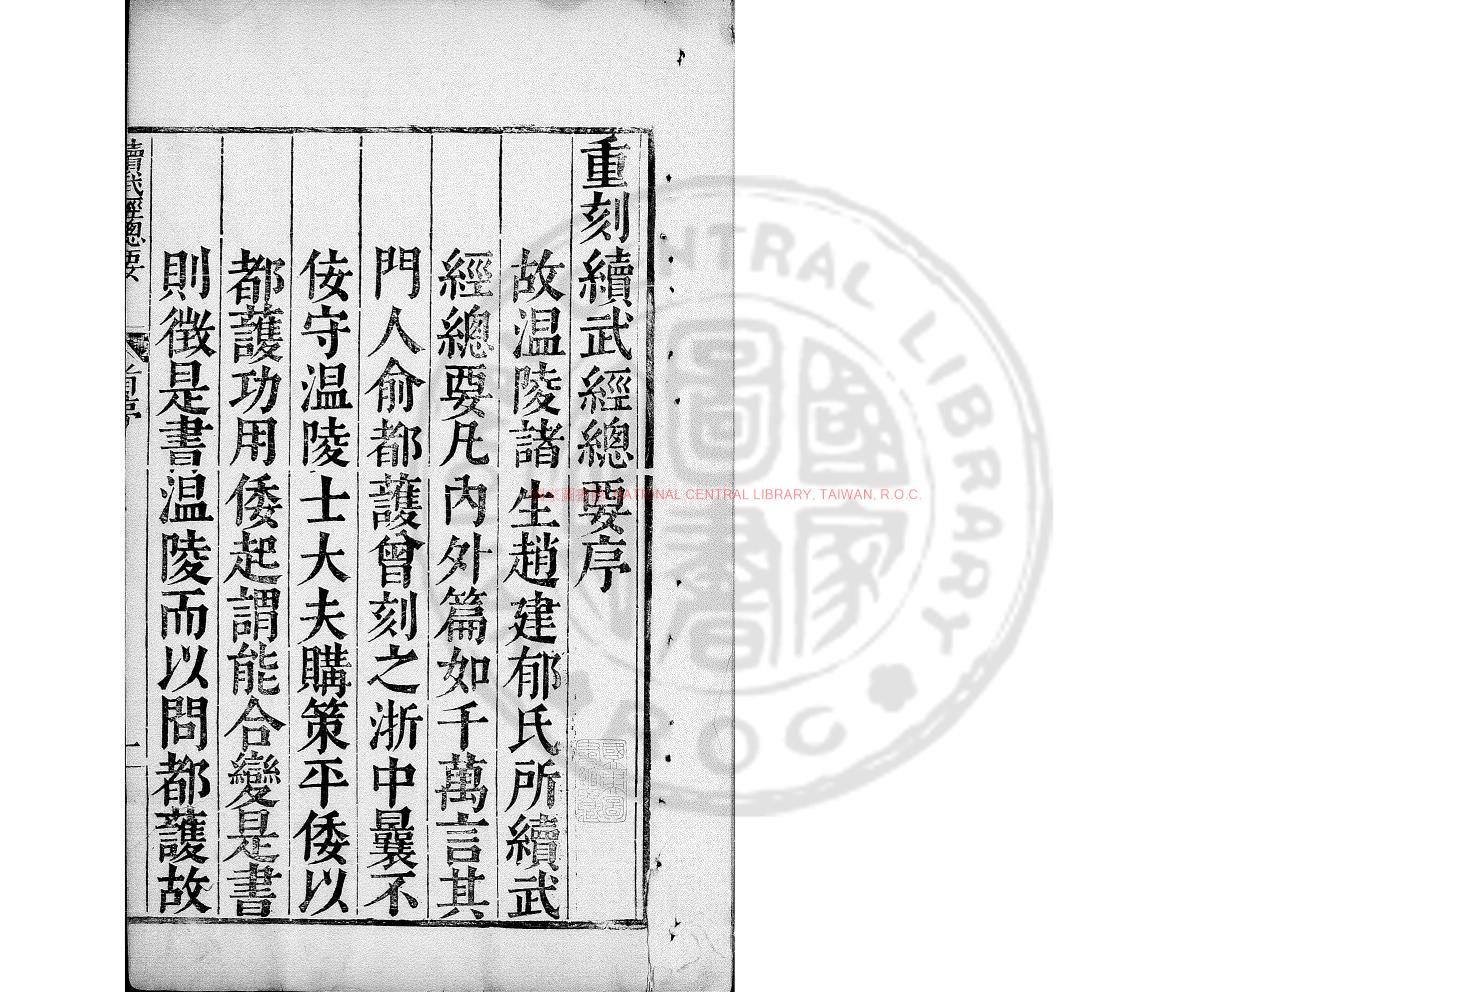 重刻續武經總要序
故温陵諸生趙建郁氏所續武
經總要凡內外篇如千萬言其
門人俞都䕶曾刻之浙中曩不
佞守温陵士大夫購策平倭以
都䕶功用倭起謂能合變是書
則徴是書温陵而以問都䕶故
續武經總要
首序
一
NATIONAL CENTRAL LIBRARY, TAIWAN, R.O.C.
CENTRAL LIBRARY
ROC
國家圖書